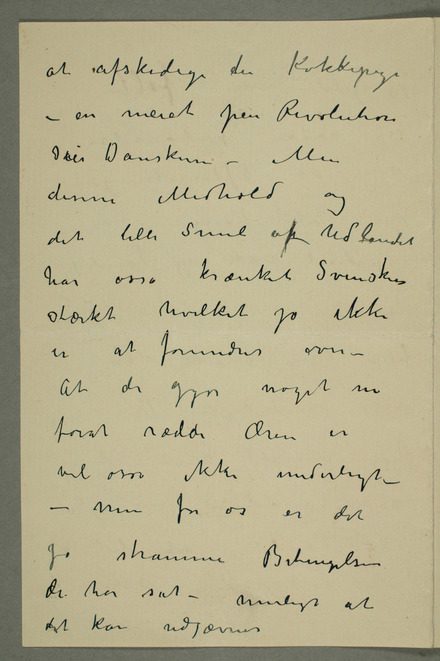 at afskedige en Kokkepige
– en meget pen Revolution
siger Danskerne – Men
denne Medhold og
det lille Smil af Udlandet
har osso krænket Svenskerne
stærkt hvilket jo ikke
er at forundres over –
At de gjør noget nu
forat rædde Æren er
vel osso ikke underligt –
– men for os er det
jo stramme Betingelser
de har sat – muligt at
det kan udjævnes